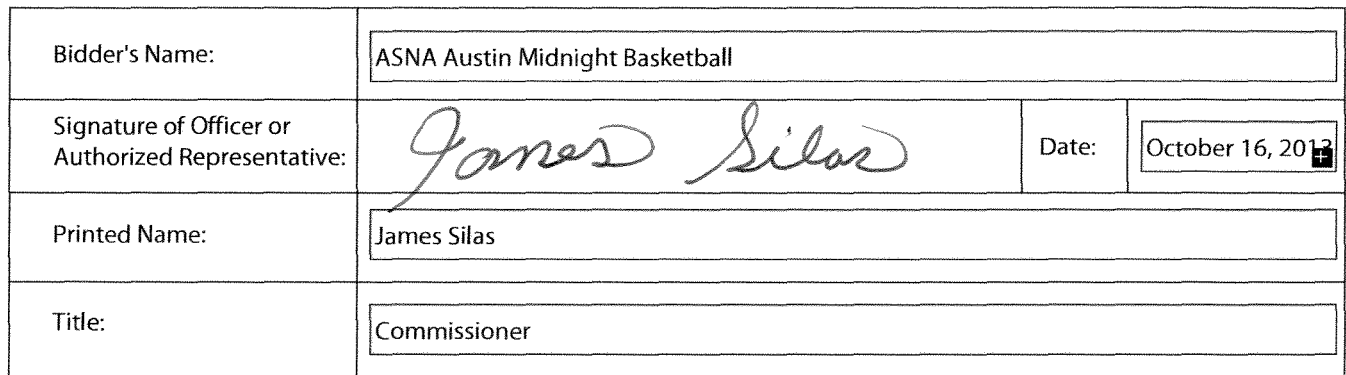 Bidder's Name:
ASNA Austin Midnight Basketball
Signature of Officer or
Authorized Representative:
James Silas
Date:
October 16, 2013
Printed Name:
James Silas
Title:
Commissioner